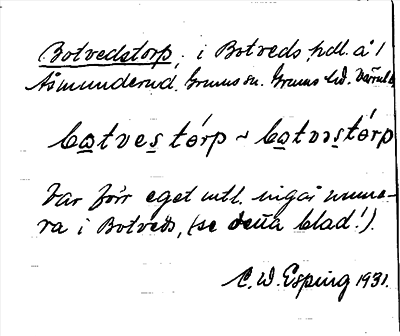 Botvedstorp, i Botveds, hdl. å /
Åsmunderud, Grums sn. Grums hd. Värml.
bo̲tves̲tórp ~ bo̲tvɪs̲tórp
Var förr eget mtl. ingår nume-
ra i Botveds, (se detta blad!).
C. W. Esping 1931.